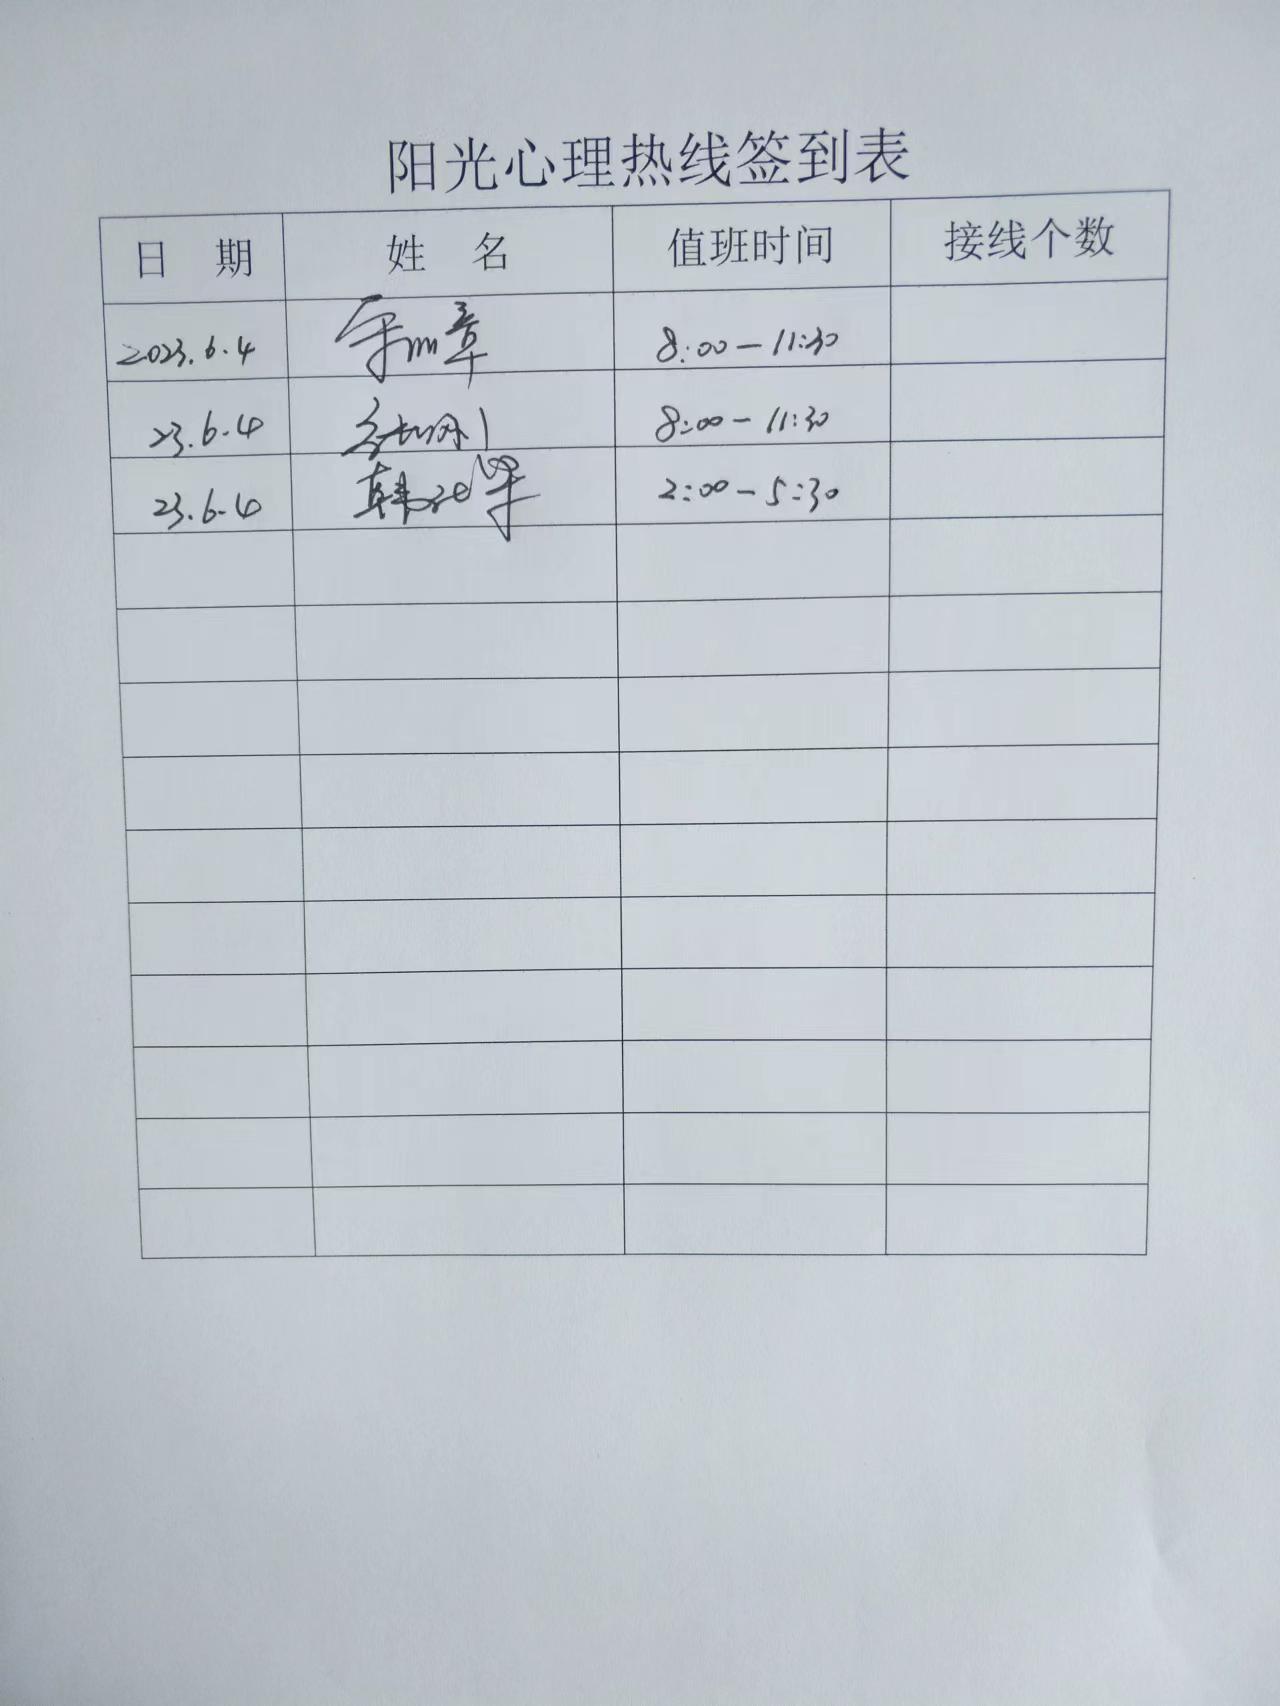 阳光心理热线签到表
日 期 姓 名 值班时间 接线个数
2023.6.4 8:00-11:30
23.6.4 8:00-11:30
23.6.4 韩 2:00-5:30